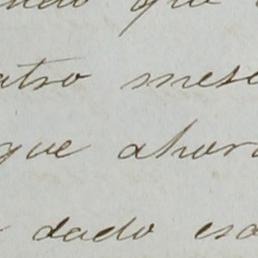 que
atro mese
que ahora
dado esa